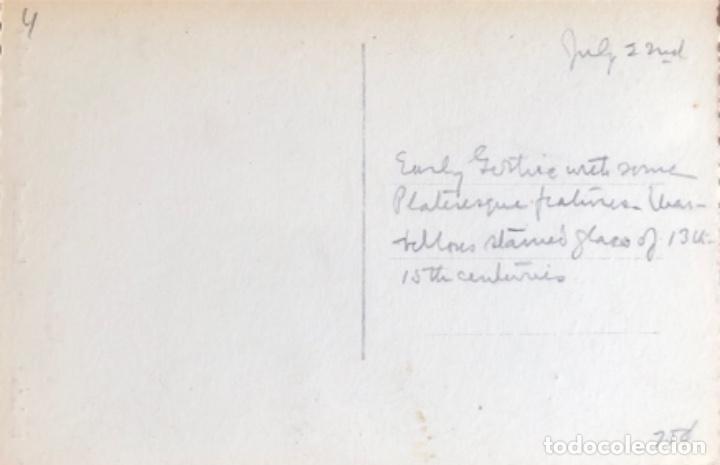 4
July 22nd
Early Gothic with some
Plateresque features. Mar-
vellous stained glass of 13th-
15th centuries
todocoleccion